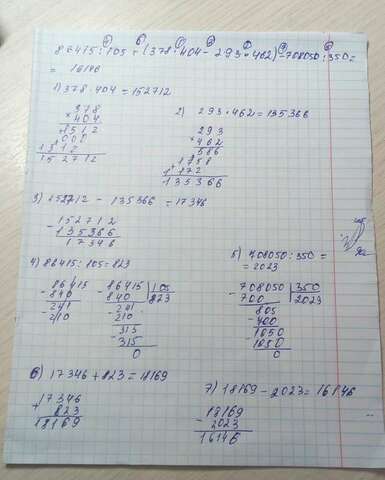 86415:105+(378·404-293·462)-708050:350=
= 16146
1) 378·404=152712
378
×404
1512
000
1512
152712
2) 293·462=135366
293
×462
586
1758
1172
135366
3) 152712 - 135366 = 17346
-152712
135366
17346
4) 86415:105=823
-86415
840
-241
210
-86415 | 105
840 | 823
-241
210
-315
-315
0
5) 708050:350=
= 2023
-708050 | 350
700 | 2023
805
-700
-1050
1050
0
6) 17346+823=18169
+17346
823
18169
7) 18169-2023=16146
-18169
2023
16146